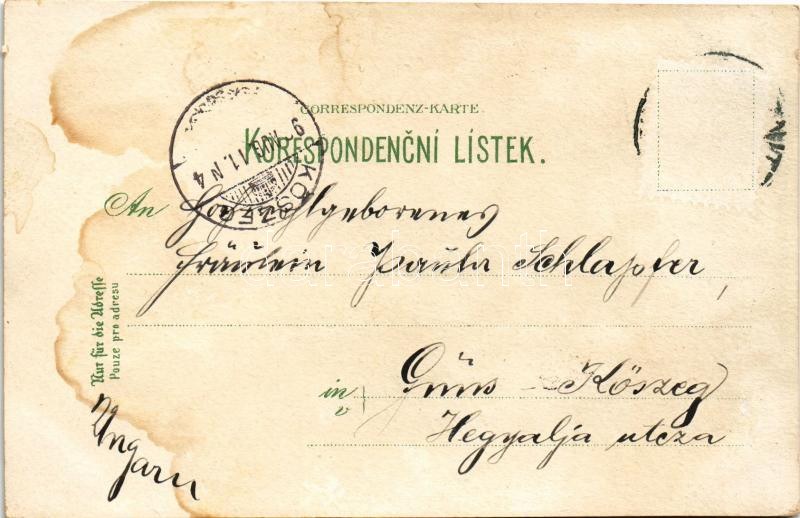 CORRESPONDENZ-KARTE.
KORESPONDENČNÍ LÍSTEK.
KŐSZEG
An Hochwohlgeborenes
Fräulein Paula Schlapfer,
in
v
Güns - Kőszeg
Hegyalja utcza
Ungarn
Nur für die Adresse
Pouze pro adresu